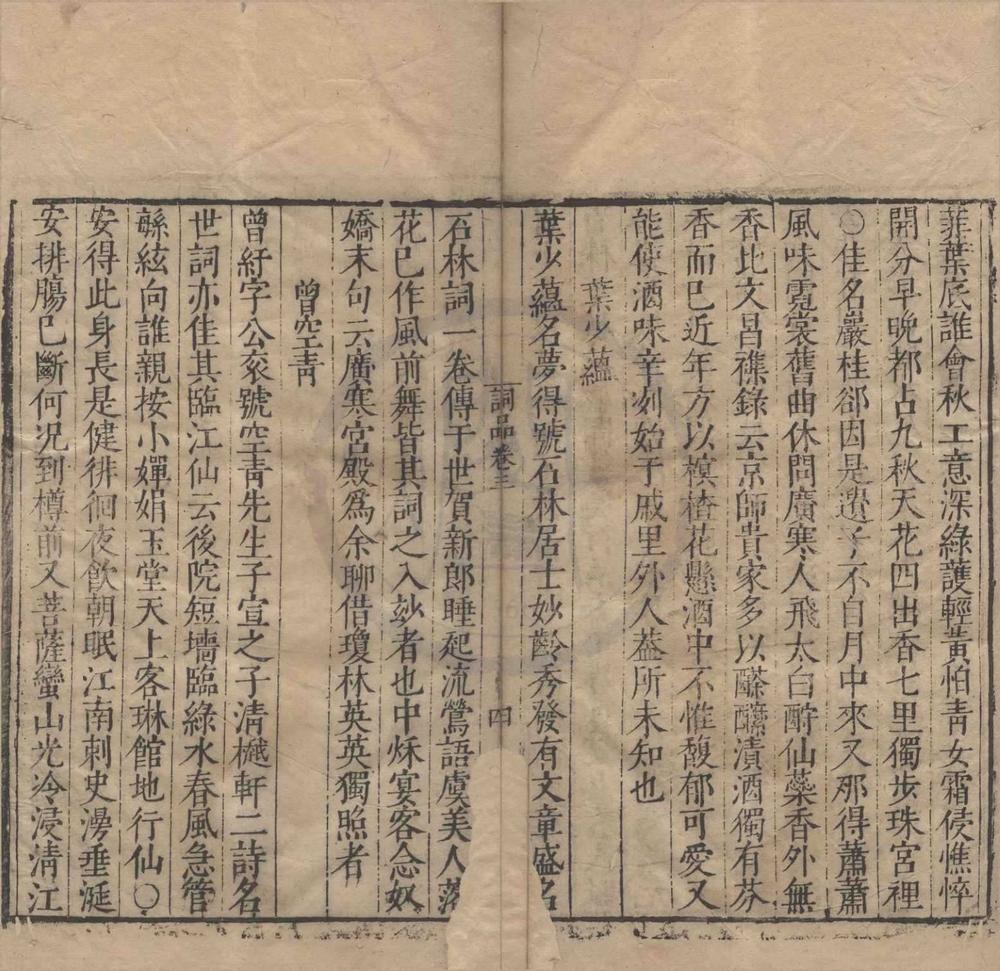 菲葉底誰會秋工意深綠護輕黃怕青女霜侵憔悴
開分早晚都占九秋天花四出香七里獨步珠宮裡
○佳名巖桂郤因是遺子不自月中來又那得蕭蕭
風味霓裳舊曲休問廣寒人飛太白酹仙蘂香外無
香比文昌襍錄云京師貴家多以醾釄漬酒獨有芬
香而已近年方以榠楂花懸酒中不惟馥郁可愛又
能使酒味辛冽始于戚里外人葢所未知也
葉少蘊
葉少蘊名夢得號石林居士妙齡秀發有文章盛名
詞品卷三 四
石林詞一卷傳于世賀新郎睡起流鶯語虞美人落
花已作風前舞皆其詞之入玅者也中秌宴客念奴
嬌末句云廣寒宮殿爲余聊借瓊林英英獨照者
曾空青
曾紆字公袞號空青先生子宣之子清樾軒二詩名
世詞亦佳其臨江仙云後院短墻臨綠水春風急管
緐絃向誰親按小嬋娟玉堂天上客琳館地行仙○
安得此身長是健徘徊夜飮朝眠江南刺史漫垂涎
安排膓已斷何况到樽前又菩薩蠻山光冷浸清江